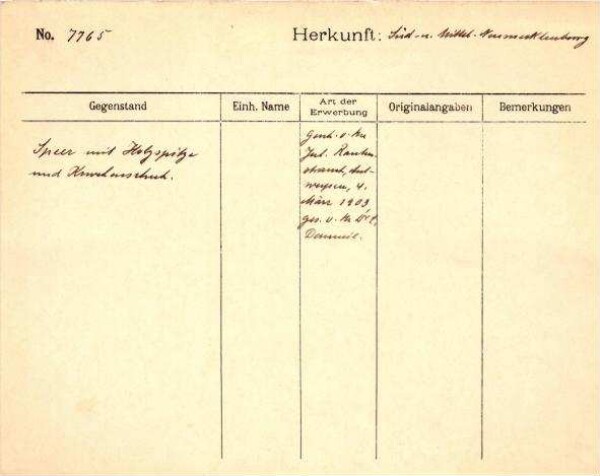 No. 7765
Herkunft: Süd- u. Mittel-Neumecklenburg
Gegenstand
Einh. Name
Art der
Erwerbung
Originalangaben
Bemerkungen
Speer mit Holzspitze
und Knochenschuh.
Gesch. v. Hn
Jul. Rauten-
strauch, Ant-
werpen, 4.
März 1903
ges. v. Hn